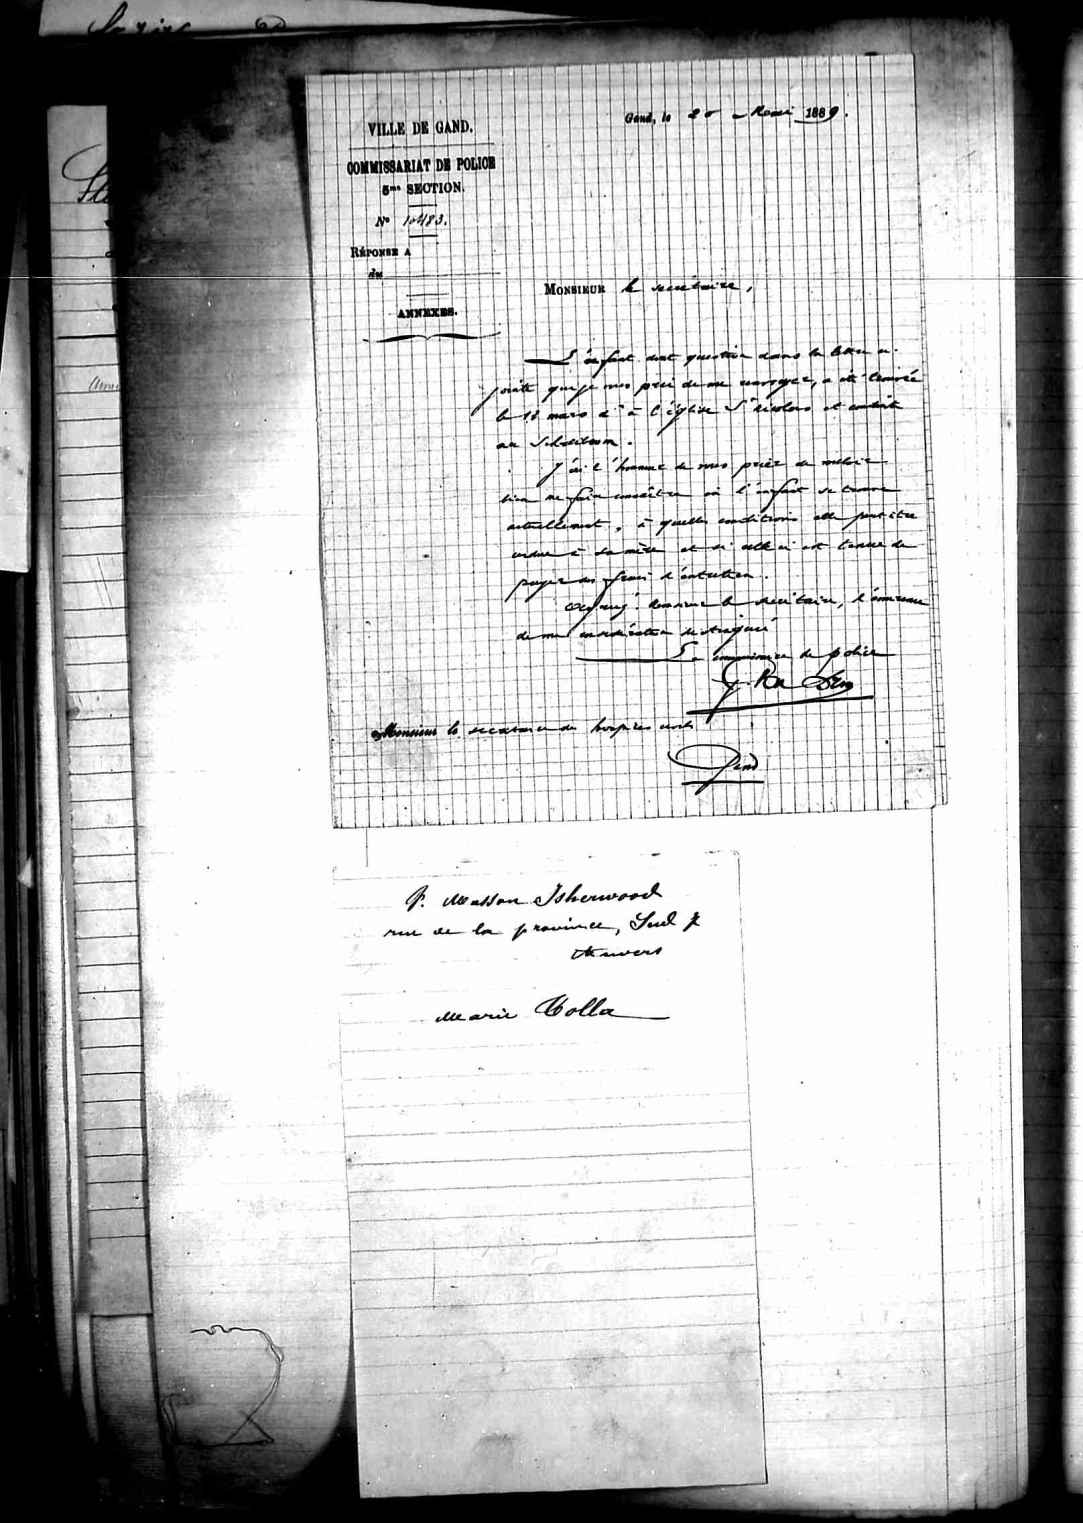 VILLE DE GAND.
COMMISSARIAT DE POLICE
5me SECTION.
No 10483.
RÉPONSE A
du
ANNEXES.
Gand, le 20 Mai 1889.
MONSIEUR le secrétaire,
L'enfant dont question dans la lettre ci-
jointe que je vous prie de me renvoyer, a été trouvée
le 18 mars à l'église St Nicolas et
au
J'ai l'honneur de vous prier de vouloir
bien me faire connaître où l'enfant se trouve
actuellement, à quelles conditions elle peut être
rendue à sa mère et si celle ci est tenue de
payer des frais d'entretien.
Agréez Monsieur le secrétaire, l'assurance
de ma considération distinguée
Le commissaire de police
Monsieur le secrétaire des hospices civils
Gand
P. Masson Isherwood
rue de la province, Sud
Anvers
Marie Colla